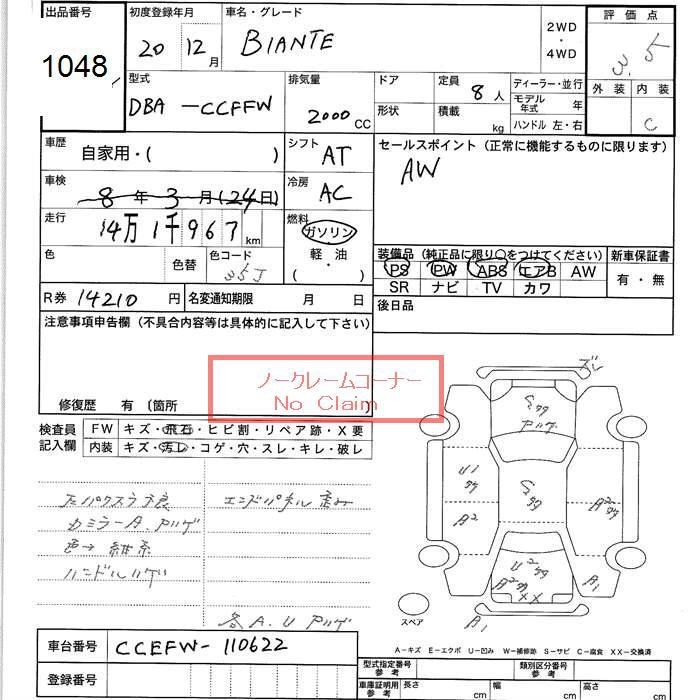 出品番号
1048
初度登録年月
20 12月
車名・グレード
BIANTE
2WD
・
4WD
評価点
3.5
外装 内装
C
型式
DBA-CCEFFW
排気量
2000CC
ドア
形状
定員
8人
積載
kg
ディーラー・並行
モデル年式 年
ハンドル 左・右
車歴
自家用・( )
シフト
AT
セールスポイント (正常に機能するものに限ります)
AW
車検
8年3月(24日)
冷房
AC
走行
14万1千967km
燃料
ガソリン
軽・油
( )
色
色替
色コード
35J
装備品 (純正品に限り○をつけてください)
PS PW ABS エアB AW
SR ナビ TV カワ
新車保証書
有・無
R券 14210円
名変通知期限 月 日
後日品
注意事項申告欄 (不具合内容等は具体的に記入して下さい)
ノークレームコーナー
No Claim
修復歴 有 〔箇所
検査員
記入欄
FW キズ・飛石・ヒビ割・リペア跡・X要
内装 キズ・汚レ・コゲ・穴・スレ・キレ・破レ
エンドパネル歪み
ハンドルハゲ
各A.U
ズレ
U1
A2
A1
A1
スペア
A-キズ E-エクボ U-凹み W-補修跡 S-サビ C-腐食 XX-交換済
車台番号 CCEFW-110622
登録番号
型式指定番号
参考
類別区分番号
参考
車庫証明用
参考
長さ cm 幅 cm 高さ cm